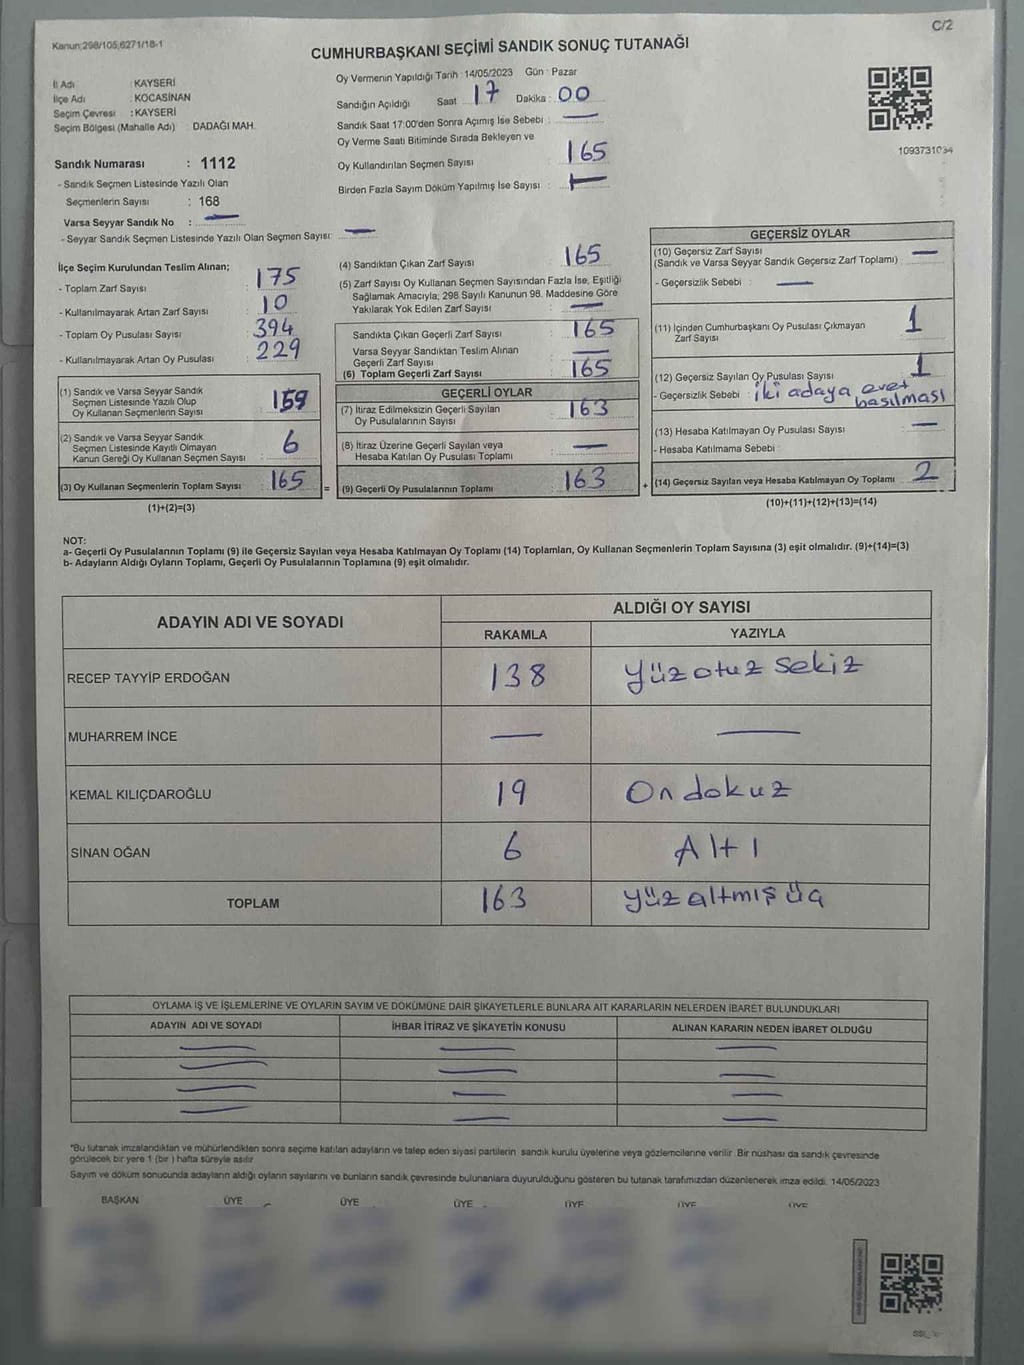 Kanun;298/105;6271/18-1
C/2
CUMHURBAŞKANI SEÇİMİ SANDIK SONUÇ TUTANAĞI
İl Adı : KAYSERİ
İlçe Adı : KOCASİNAN
Seçim Çevresi : KAYSERİ
Seçim Bölgesi (Mahalle Adı) : DADAĞI MAH.
Sandık Numarası : 1112
- Sandık Seçmen Listesinde Yazılı Olan
Seçmenlerin Sayısı : 168
Varsa Seyyar Sandık No : —
- Seyyar Sandık Seçmen Listesinde Yazılı Olan Seçmen Sayısı: —
Oy Vermenin Yapıldığı Tarih : 14/05/2023 Gün : Pazar
Sandığın Açıldığı Saat : 17 Dakika : 00
Sandık Saat 17:00'den Sonra Açımış İse Sebebi : —
Oy Verme Saati Bitiminde Sırada Bekleyen ve
Oy Kullandırılan Seçmen Sayısı : 165
Birden Fazla Sayım Döküm Yapılmış İse Sayısı : —
İlçe Seçim Kurulundan Teslim Alınan;
- Toplam Zarf Sayısı : 175
- Kullanılmayarak Artan Zarf Sayısı : 10
- Toplam Oy Pusulası Sayısı : 394
- Kullanılmayarak Artan Oy Pusulası : 229
(1) Sandık ve Varsa Seyyar Sandık
Seçmen Listesinde Yazılı Olup
Oy Kullanan Seçmenlerin Sayısı : 159
(2) Sandık ve Varsa Seyyar Sandık
Seçmen Listesinde Kayıtlı Olmayan
Kanun Gereği Oy Kullanan Seçmen Sayısı : 6
(3) Oy Kullanan Seçmenlerin Toplam Sayısı : 165
(1)+(2)=(3)
(4) Sandıktan Çıkan Zarf Sayısı : 165
(5) Zarf Sayısı Oy Kullanan Seçmen Sayısından Fazla İse, Eşitliği
Sağlamak Amacıyla; 298 Sayılı Kanunun 98. Maddesine Göre
Yakılarak Yok Edilen Zarf Sayısı : —
Sandıkta Çıkan Geçerli Zarf Sayısı : 165
Varsa Seyyar Sandıktan Teslim Alınan
Geçerli Zarf Sayısı : —
(6) Toplam Geçerli Zarf Sayısı : 165
GEÇERLİ OYLAR
(7) İtiraz Edilmeksizin Geçerli Sayılan
Oy Pusulalarının Sayısı : 163
(8) İtiraz Üzerine Geçerli Sayılan veya
Hesaba Katılan Oy Pusulası Toplamı : —
= (9) Geçerli Oy Pusulalarının Toplamı : 163
GEÇERSİZ OYLAR
(10) Geçersiz Zarf Sayısı
(Sandık ve Varsa Seyyar Sandık Geçersiz Zarf Toplamı) : —
- Geçersizlik Sebebi : —
(11) İçinden Cumhurbaşkanı Oy Pusulası Çıkmayan
Zarf Sayısı : 1
(12) Geçersiz Sayılan Oy Pusulası Sayısı : 1
- Geçersizlik Sebebi : iki adaya evet
basılması
(13) Hesaba Katılmayan Oy Pusulası Sayısı : —
- Hesaba Katılmama Sebebi :
+ (14) Geçersiz Sayılan veya Hesaba Katılmayan Oy Toplamı : 2
(10)+(11)+(12)+(13)=(14)
NOT:
a- Geçerli Oy Pusulalarının Toplamı (9) ile Geçersiz Sayılan veya Hesaba Katılmayan Oy Toplamı (14) Toplamları, Oy Kullanan Seçmenlerin Toplam Sayısına (3) eşit olmalıdır. (9)+(14)=(3)
b- Adayların Aldığı Oyların Toplamı, Geçerli Oy Pusulalarının Toplamına (9) eşit olmalıdır.
ADAYIN ADI VE SOYADI ALDIĞI OY SAYISI
RAKAMLA YAZIYLA
RECEP TAYYİP ERDOĞAN 138 Yüz otuz sekiz
MUHARREM İNCE — —
KEMAL KILIÇDAROĞLU 19 On dokuz
SİNAN OĞAN 6 Altı
TOPLAM 163 Yüz altmış üç
OYLAMA İŞ VE İŞLEMLERİNE VE OYLARIN SAYIM VE DÖKÜMÜNE DAİR ŞİKAYETLERLE BUNLARA AİT KARARLARIN NELERDEN İBARET BULUNDUKLARI
ADAYIN ADI VE SOYADI İHBAR İTİRAZ VE ŞİKAYETİN KONUSU ALINAN KARARIN NEDEN İBARET OLDUĞU
— — —
— — —
— — —
— — —
*Bu tutanak imzalandıktan ve mühürlendikten sonra seçime katılan adayların ve talep eden siyasi partilerin sandık kurulu üyelerine veya gözlemcilerine verilir. Bir nüshası da sandık çevresinde
görülecek bir yere 1 (bir ) hafta süreyle asılır.
Sayım ve döküm sonucunda adayların aldığı oyların sayılarını ve bunların sandık çevresinde bulunanlara duyurulduğunu gösteren bu tutanak tarafımızdan düzenlenerek imza edildi. 14/05/2023
BAŞKAN ÜYE ÜYE ÜYE ÜYE ÜYE ÜYE